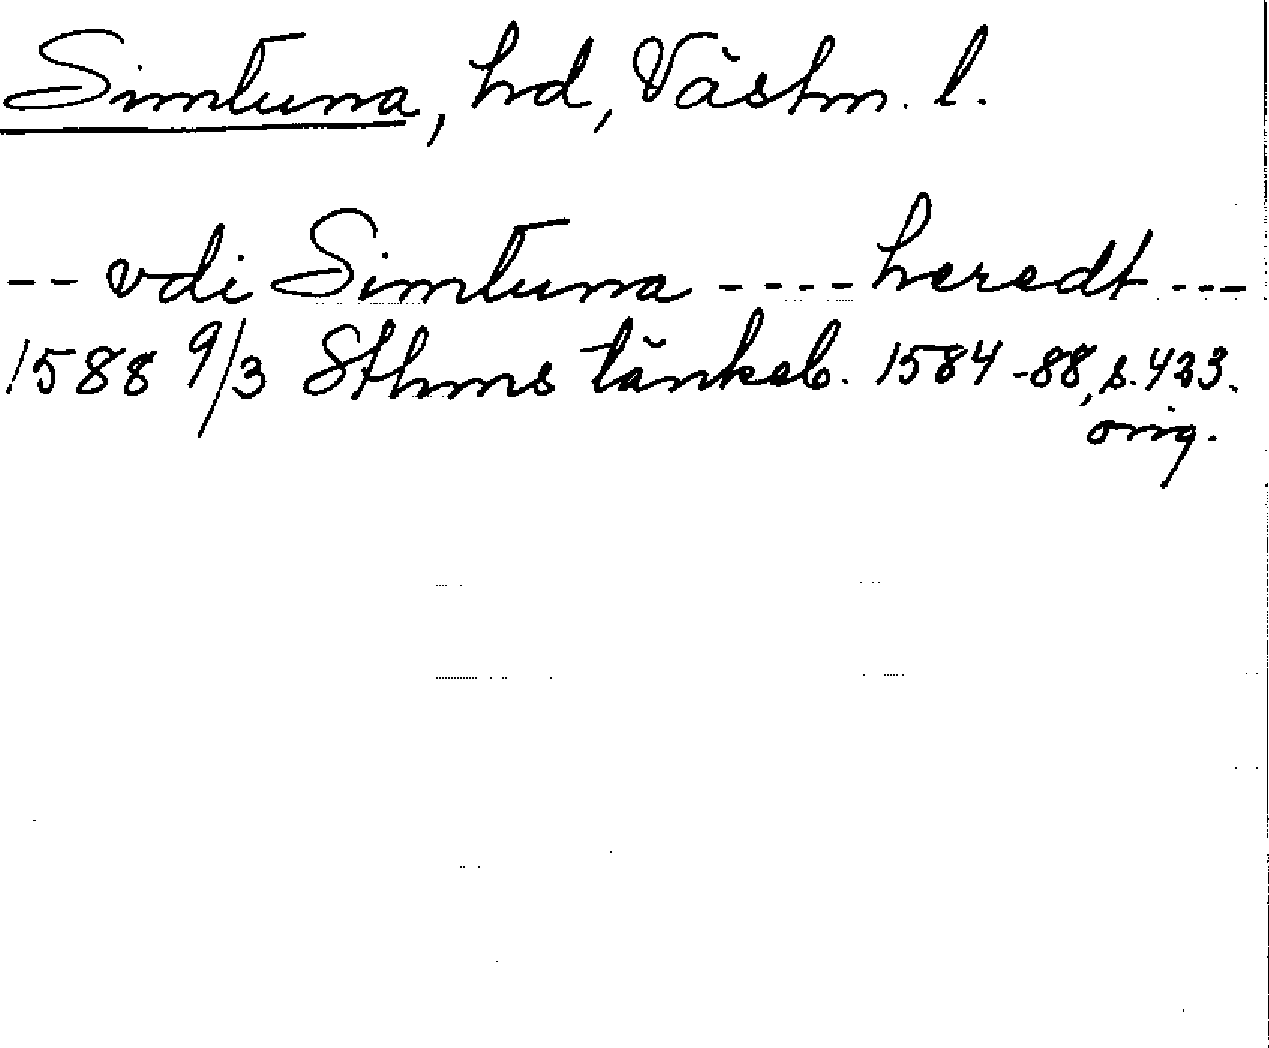 Simtuna, hd, Västm. l.
-- vdi Simtuna ---- heredt ---
1588 9/3 Sthms tänkeb. 1584-88, s. 423.
orig.